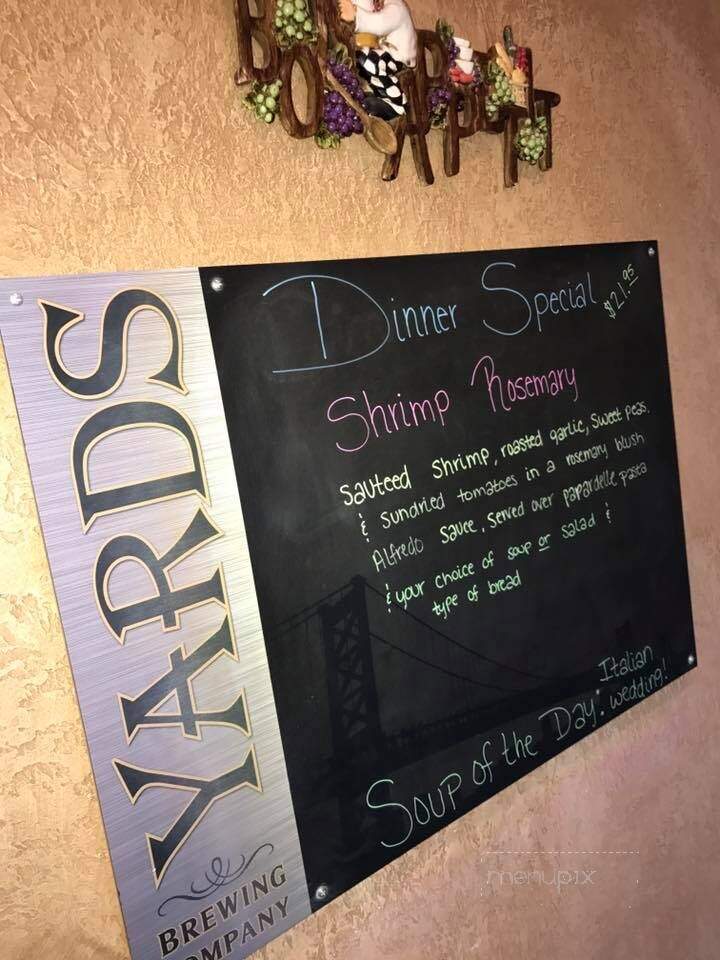 BON
APPETIT
Dinner Special $21.95
Shrimp Rosemary
Sauteed Shrimp, roasted garlic, Sweet peas,
& Sundried tomatoes in a rosemary blush
Alfredo Sauce, Served over papardelle pasta
& your choice of soup or salad &
type of bread
Soup of the Day: Italian
wedding!
YARDS
BREWING
COMPANY
menupix